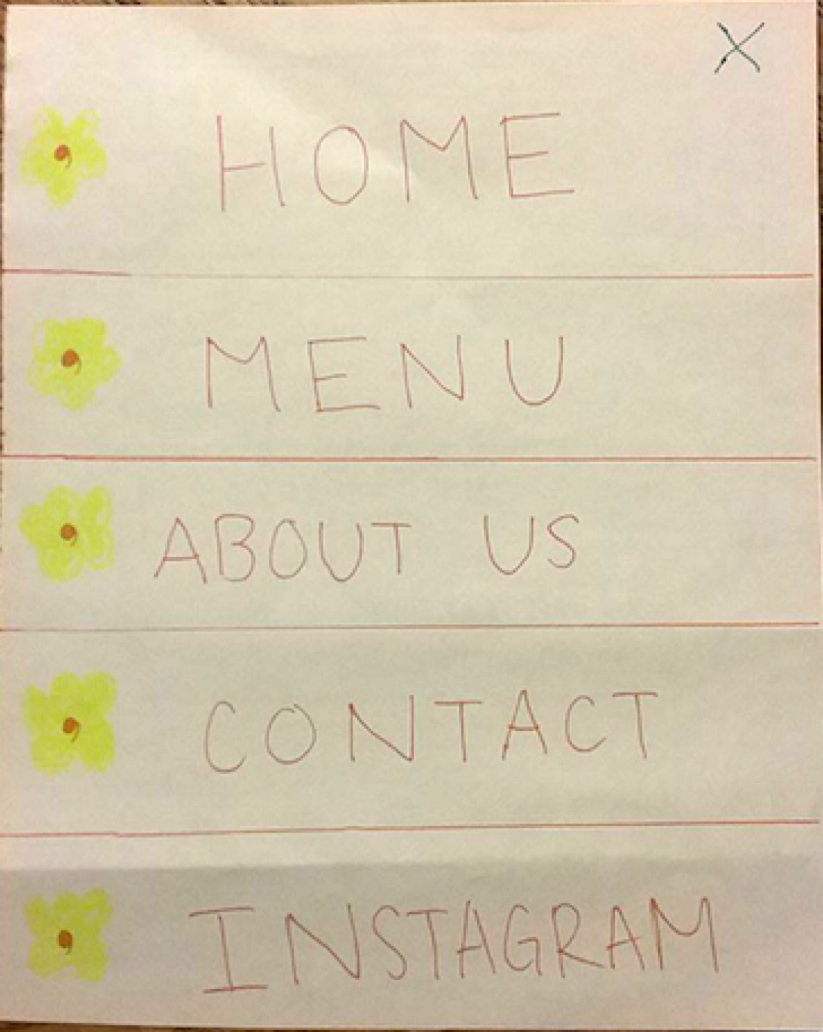 X
HOME
MENU
ABOUT US
CONTACT
INSTAGRAM